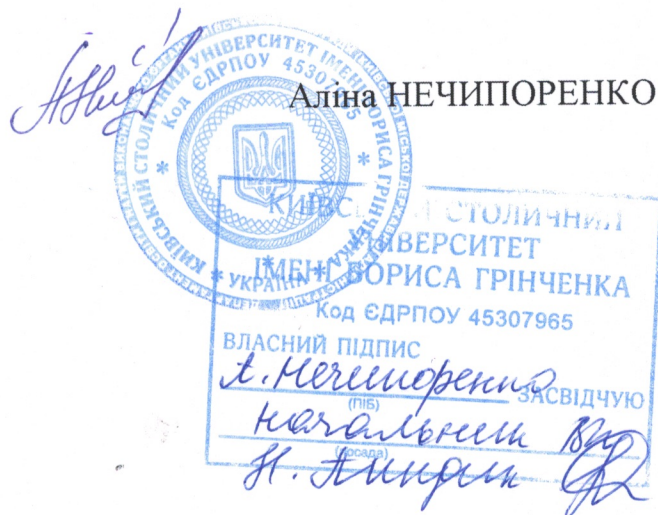 Аліна НЕЧИПОРЕНКО
КИЇВСЬКИЙ СТОЛИЧНИЙ УНІВЕРСИТЕТ ІМЕНІ БОРИСА ГРІНЧЕНКА
* УКРАЇНА *
Код ЄДРПОУ 45307965
КИЇВСЬКИЙ СТОЛИЧНИЙ
УНІВЕРСИТЕТ
ІМЕНІ БОРИСА ГРІНЧЕНКА
Код ЄДРПОУ 45307965
ВЛАСНИЙ ПІДПИС
А. Нечипоренко ЗАСВІДЧУЮ
(ПІБ)
начальник
(посада)